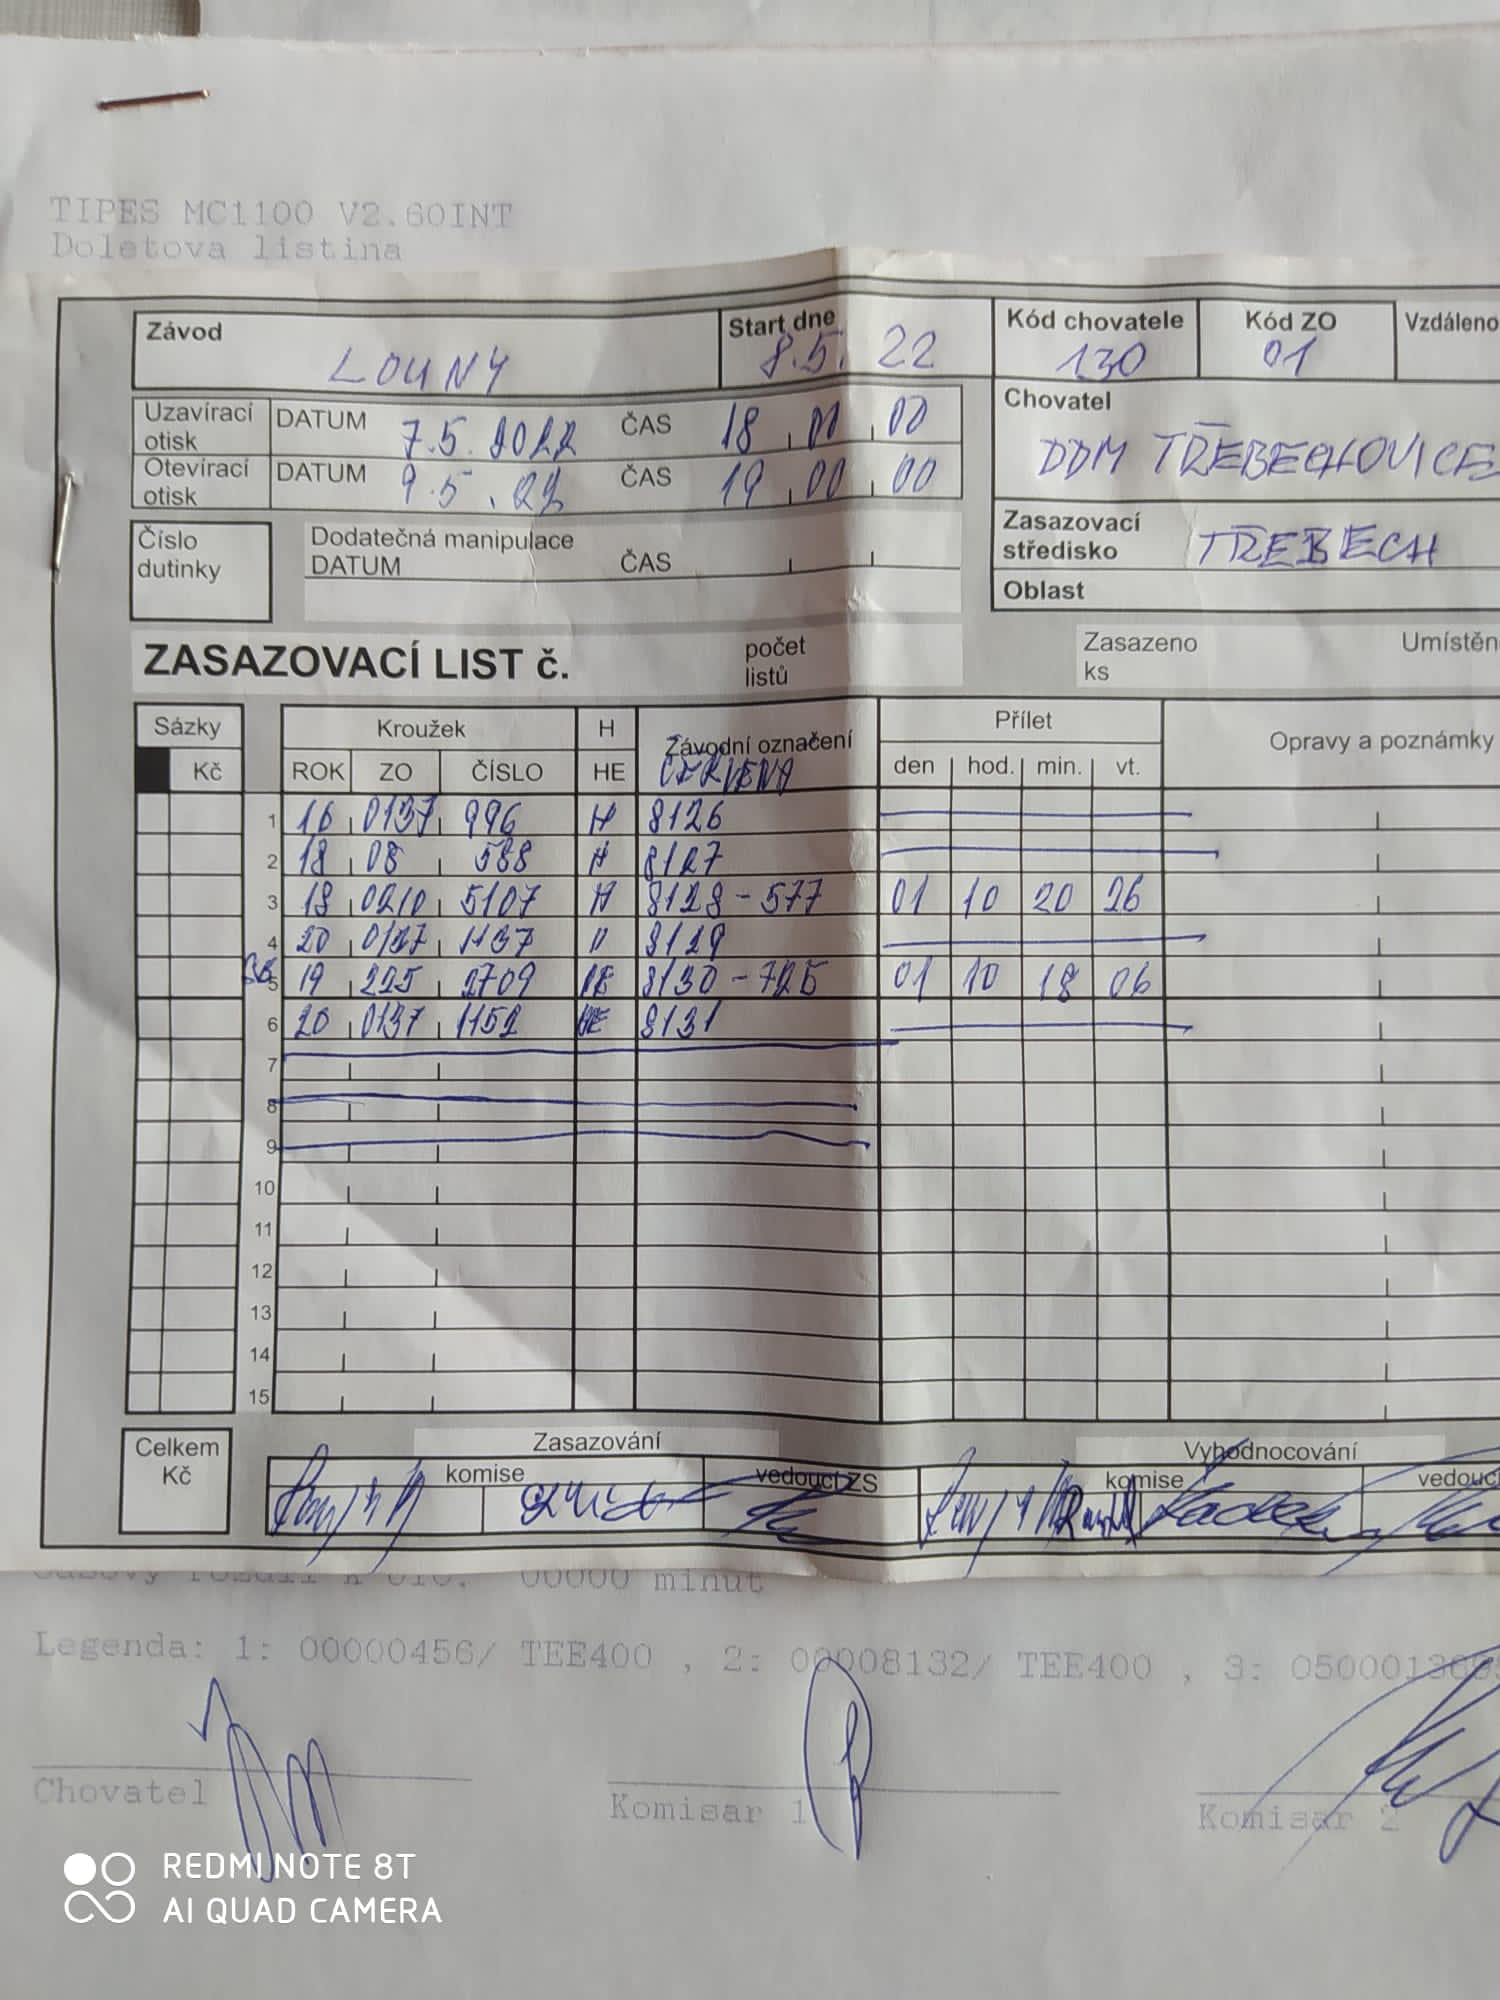 TIPES MC1100 V2.60INT
Doletova listina
Závod LOUNY
Start dne 8.5. 22
Kód chovatele 130
Kód ZO 01
Vzdáleno
Uzavírací otisk DATUM 7.5.2022 ČAS 18 00 00
Otevírací otisk DATUM 9.5.22 ČAS 19 00 00
Chovatel
DDM TŘEBECHOVICE
Číslo dutinky
Dodatečná manipulace
DATUM ČAS
Zasazovací středisko TŘEBECH
Oblast
ZASAZOVACÍ LIST č.
počet listů
Zasazeno ks
Umístěn
Sázky Kroužek H Závodní označení Přílet Opravy a poznámky
Kč ROK ZO ČÍSLO HE ČERVENÁ den hod. min. vt.
1 16 0137 996 H 8126
2 18 08 588 H 8127
3 18 0210 5107 H 8128 - 577 01 10 20 26
4 20 0137 1137 8129
5 19 225 2709 HE 8130 - 725 01 10 18 06
6 20 0137 1152 HE 8131
7
8
9
10
11
12
13
14
15
Celkem Kč
Zasazování Vyhodnocování
komise vedoucí ZS komise vedoucí
00000 minut
Legenda: 1: 00000456/ TEE400 , 2: 00008132/ TEE400 , 3:
Chovatel Komisar 1 Komisar 2
REDMI NOTE 8T
AI QUAD CAMERA